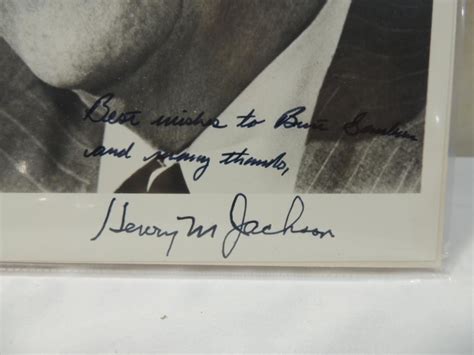 Best wishes to
and many thanks,
Henry M Jackson